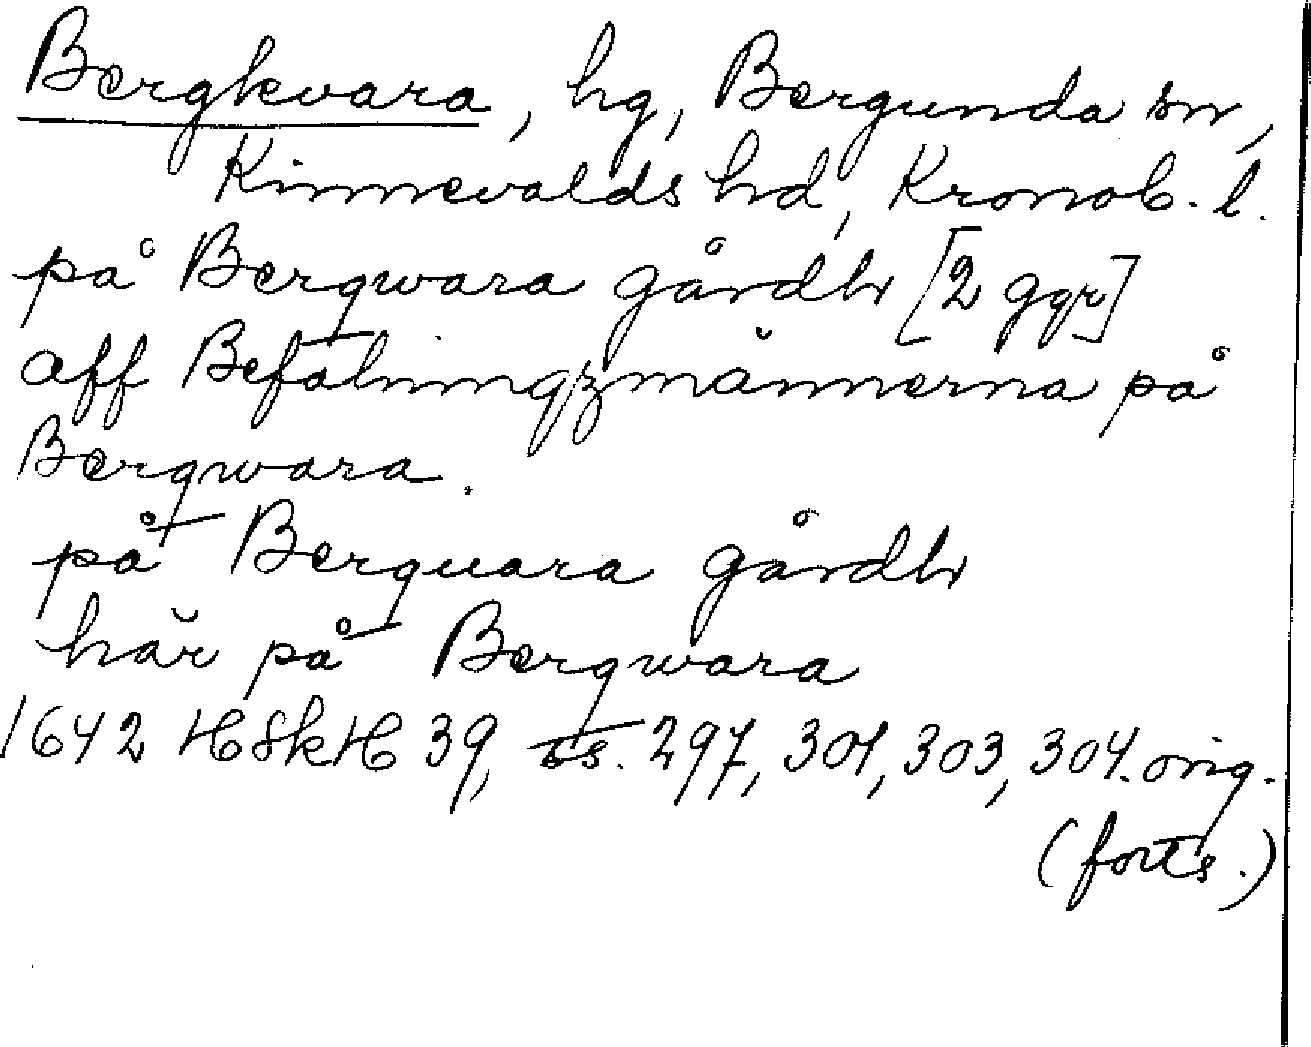 Bergkvara, hg, Bergunda sn,
Kinnevalds hd, Kronob. l.
på Bergwara gårdh [2 ggr]
aff Befalningzmännerna på
Bergwara.
på Berguara gårdh
här på Bergwara
1642 HSkH 39, ss. 297, 301, 303, 304. orig.
(forts.)